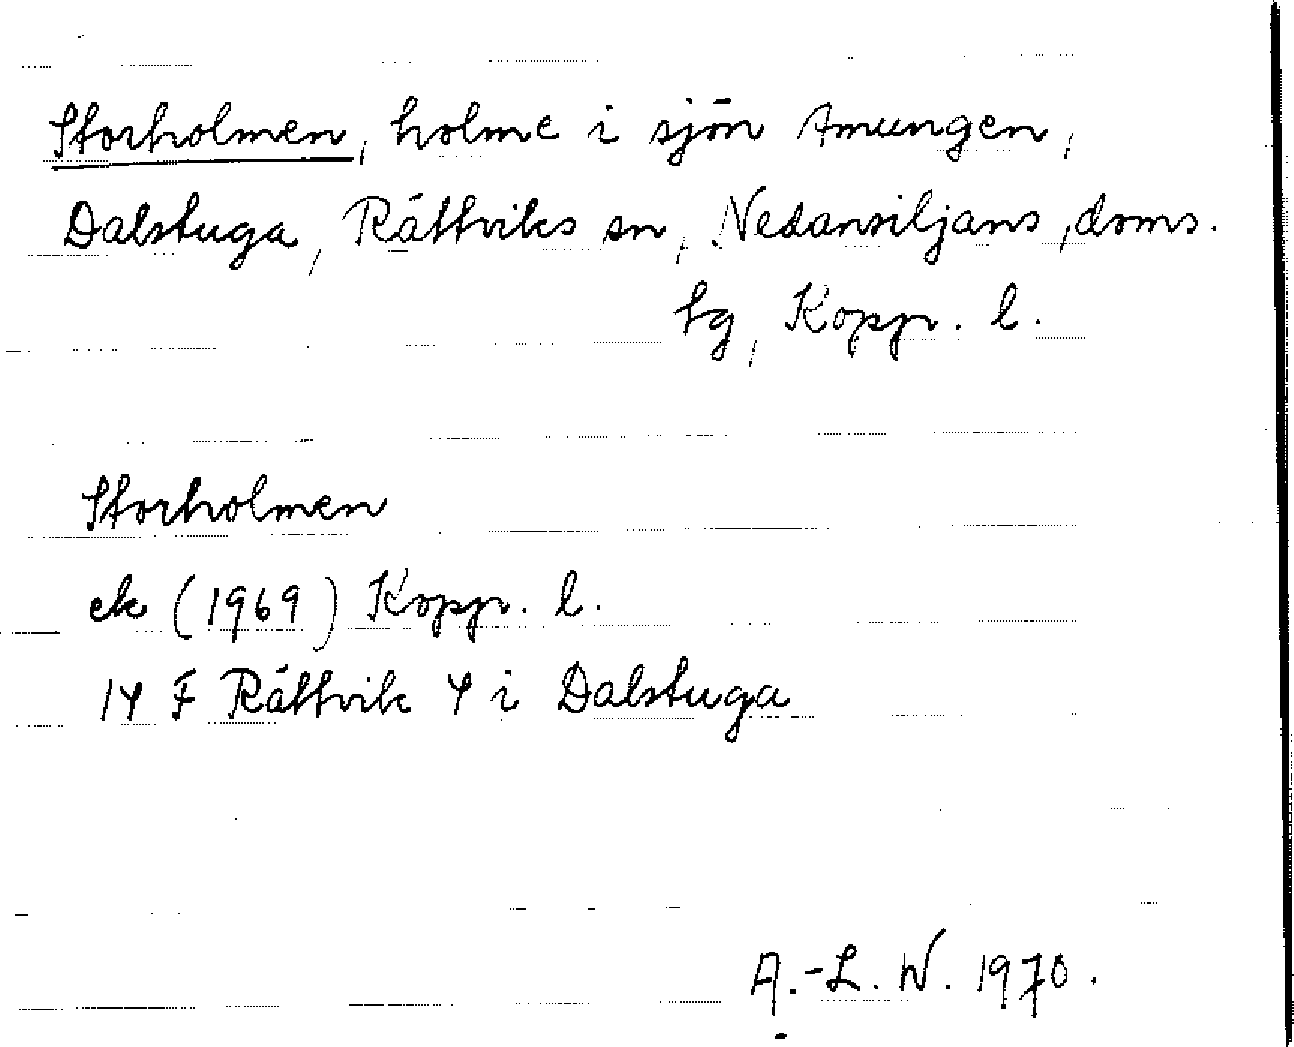 Storholmen, holme i sjön Amungen,
Dalstuga, Rättviks sn, Nedansiljans doms.
tg, Kopp. l.
Storholmen
ek (1969) Kopp. l.
14 F Rättvik 4 i Dalstuga
A.-L. W. 1970.